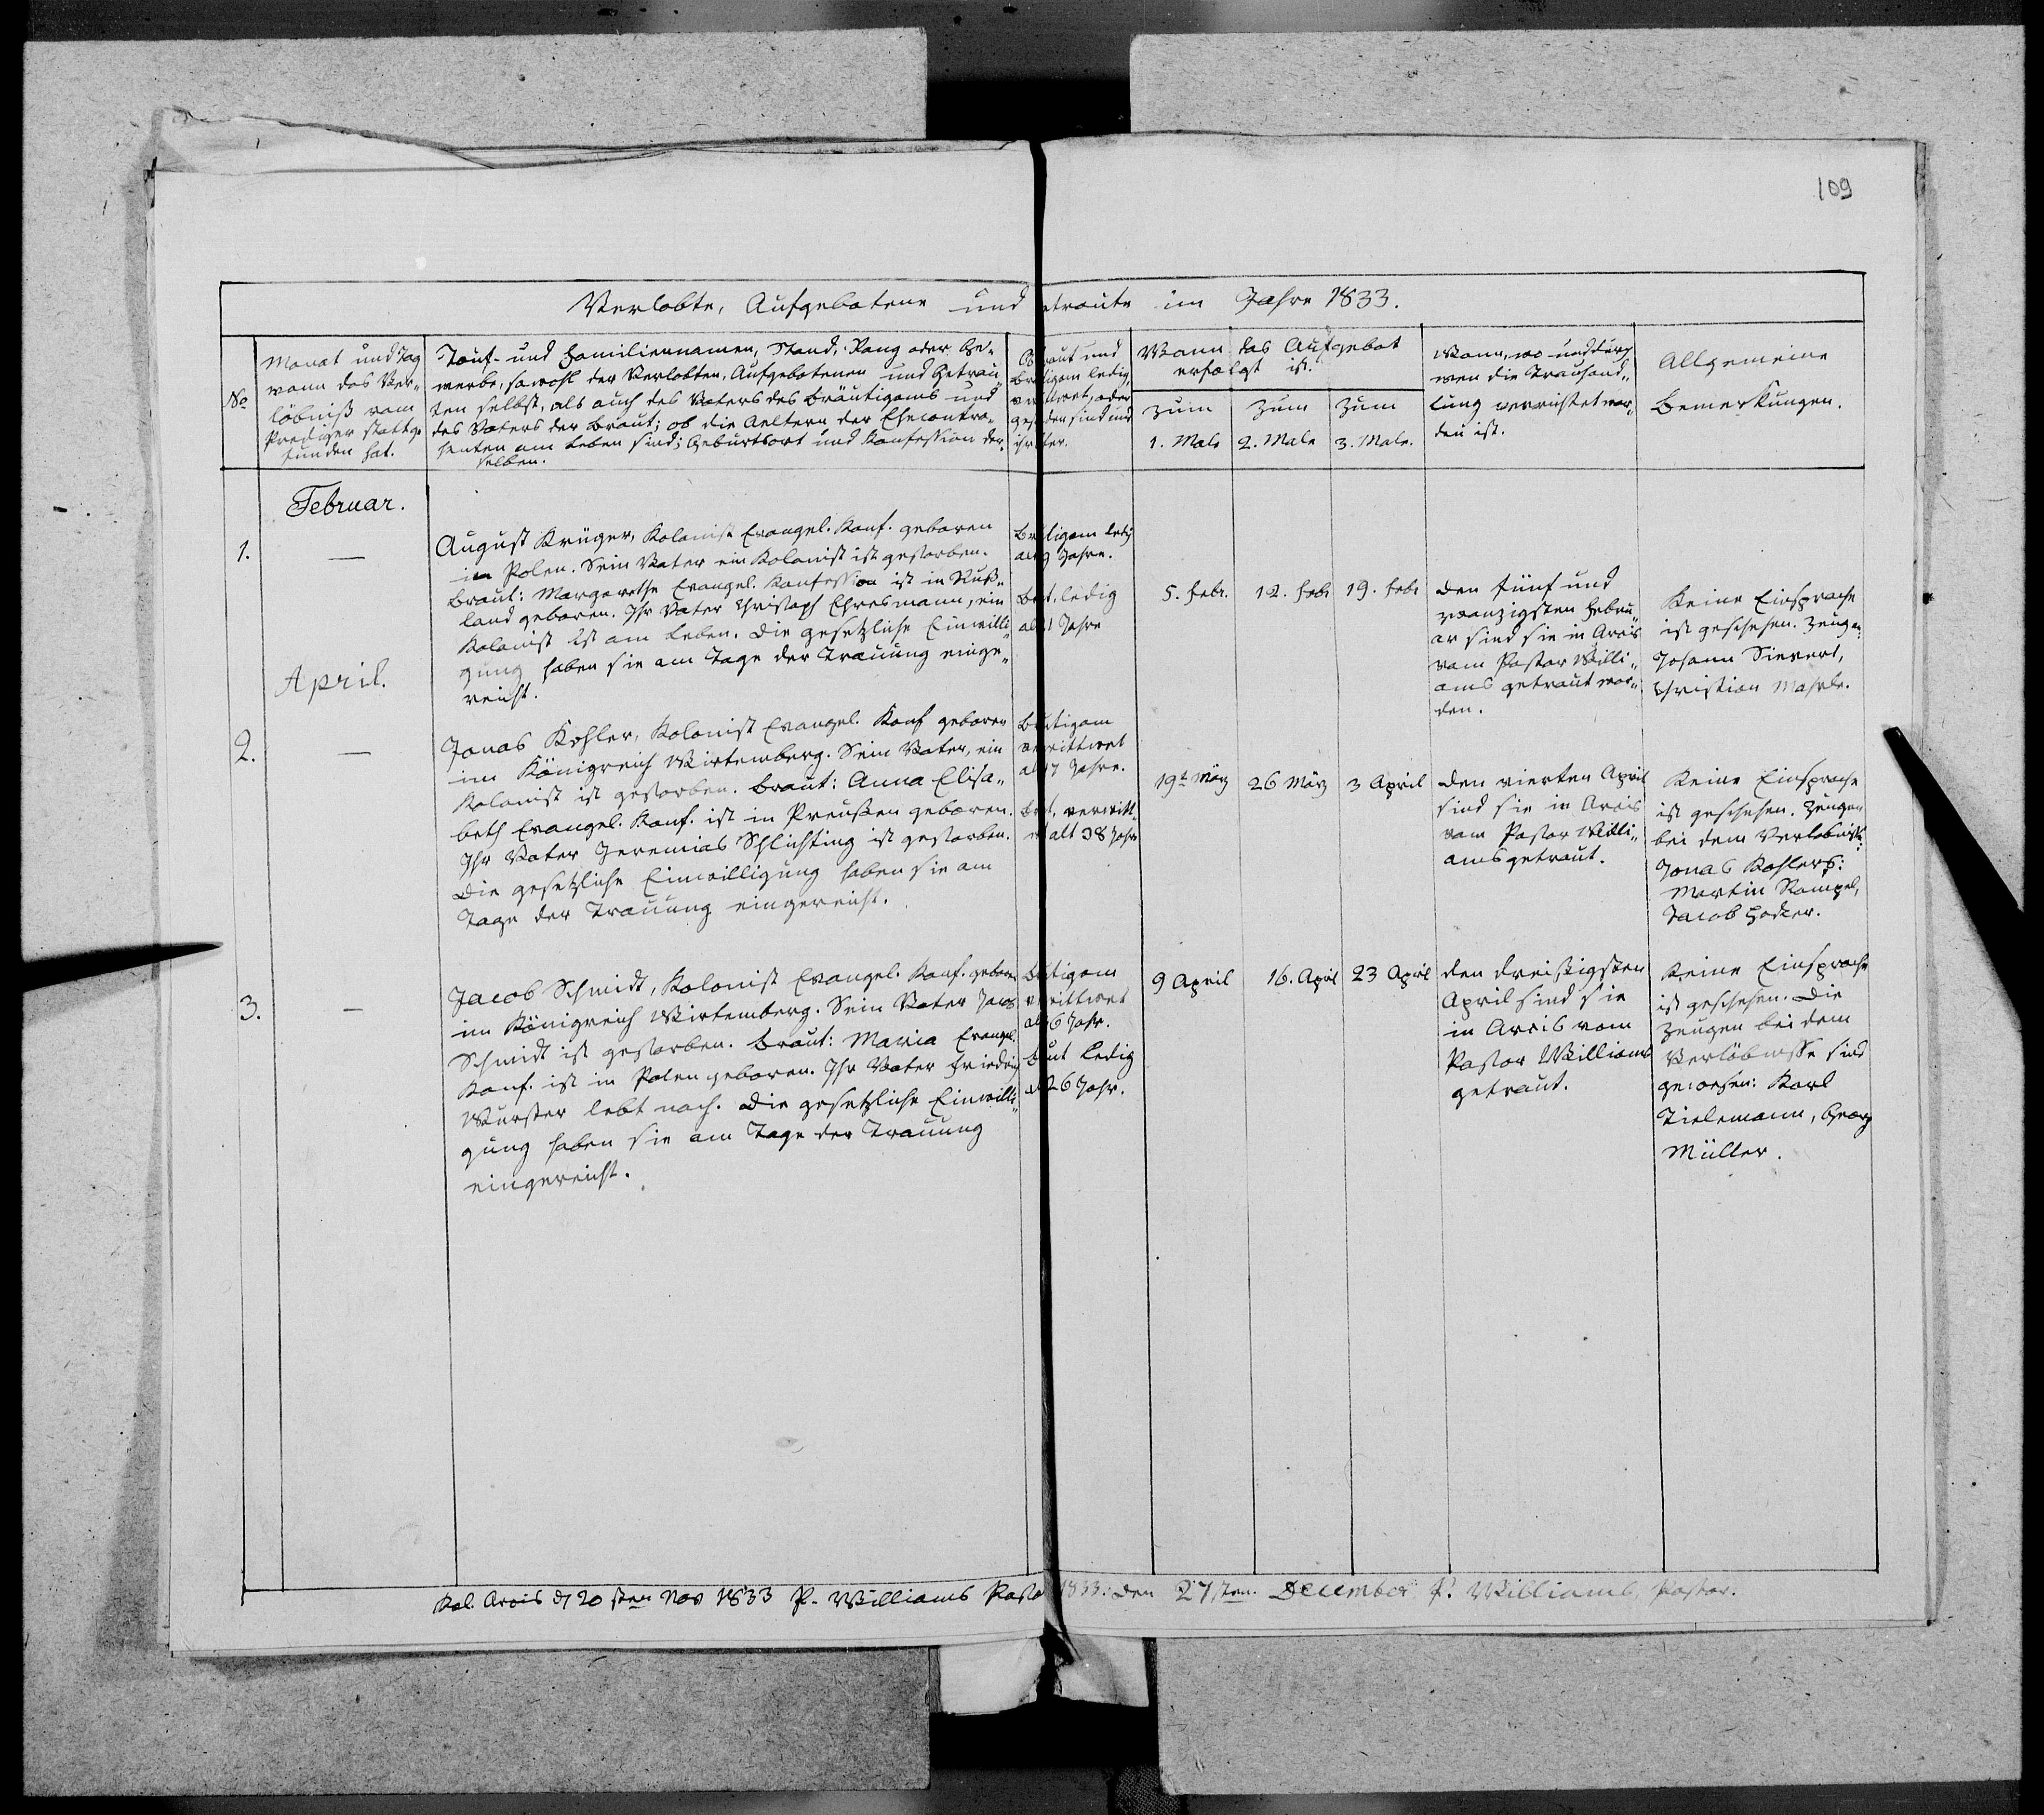 109
Verlobte, Aufgebotene und traute im Jahre 1833.
No
Monat und Tag
wann das Ver„
löbniß vom
Prediger stattge
funden hat.
Tauf- und Familiennamen, Stand, Rang oder Ge„
werbe, sowohl der Verlobten, Aufgebotenen und Getrau„
ten selbst, als auch des Vaters des Bräutigams und
des Vaters der Braut; ob die Aeltern der Ehecontra„
henten am Leben sind; Geburtsort und Konfession der„
selben.
Ob aut und
Br tigam ledig,
v ittwet, oder
ges den sind und
ihr ter.
Wann das Aufgebot
erfolgt ist.
zum
1. Male
zum
2. Male
zum
3. Male.
Wann, wo und durch
wen die Trauhand„
lung verrichtet wor„
den ist.
Allgemeine
Bemerkungen.
Februar.
1.
—
August Krüger, Kolonist Evangel. Konf. geboren
in Polen. Sein Vater ein Kolonist ist gestorben.
Braut: Margarethe Evangel. Konfession ist in Ruß„
land geboren. Ihr Vater Christoph Ehresmann, ein
Kolonist ist am Leben. Die gesetzliche Einwilli„
gung haben sie am Tage der Trauung einge„
reicht.
Br tigam ledig
alt 9 Jahre.
Br t. ledig
al 1 Jahre
5. Febr.
12. Febr
19. Febr
den fünf und
zwanzigsten Febru„
ar sind sie in Arcis
vom Pastor Willi„
ams getraut wor„
den.
Keine Einsprache
ist geschehen. Zeugen:
Johann Sievert,
Christian Mahrle.
April.
2.
—
Jonas Kohler, Kolonist Evangel. Konf geboren
im Königreich Wirtemberg. Sein Vater, ein
Kolonist ist gestorben. Braut: Anna Elisa„
beth Evangel. Konf. ist in Preußen geboren.
Ihr Vater Jeremias Schlichting ist gestorben.
Die gesetzliche Einwilligung haben sie am
Tage der Trauung eingereicht.
B utigam
v wittwet
al 7 Jahre.
B t, verwitt„
et alt 38 Jahr
19t März
26 März
3 April
den vierten April
sind sie in Arcis
vom Pastor Willi„
ams getraut.
Keine Einsprache
ist geschehen. Zeugen
bei dem Verlöbniß
Jonas Kohlers:
Martin Rampel,
Jacob
3.
—
Jacob Schmidt, Kolonist Evangel. Konf. geboren
im Königreich Wirtemberg. Sein Vater Jacob
Schmidt ist gestorben. Braut: Maria Evangel.
Konf. ist in Polen geboren. Ihr Vater Friedrich
Wurster lebt noch. Die gesetzliche Einwilli„
gung haben sie am Tage der Trauung
eingereicht.
B utigam
v wittwet
al 6 Jahr.
B ut ledig
al 26 Jahr.
9 April
16. April
23 April
den dreißigsten
April sind sie
in Arcis vom
Pastor Williams
getraut.
Keine Einsprache
ist geschehen. Die
Zeugen bei dem
Verlöbnisse sind
gewesen: Karl
Tielemann, Georg
Müller.
Kol. Arcis d 20 sten Nov 1833 F. Williams Pasto 1833. den 27 sten. December F. Williams, Pastor.